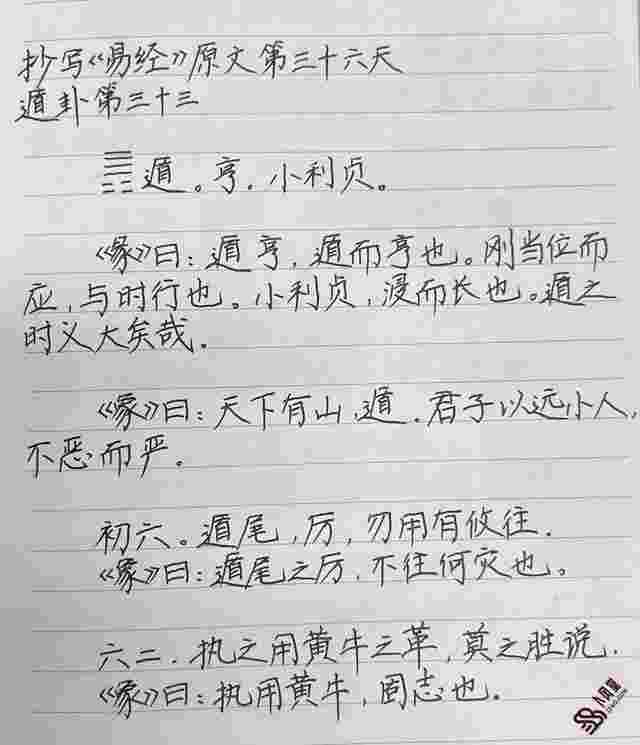 抄写《易经》原文第三十六天
遁卦第三十三
䷠遁。亨.小利贞。
《彖》曰:遁亨,遁而亨也。刚当位而
应,与时行也。小利贞,浸而长也。遁之
时义大矣哉.
《象》曰:天下有山,遁.君子以远小人,
不恶而严。
初六。遁尾,厉,勿用有攸往.
《象》曰:遁尾之厉,不往何灾也。
六二.执之用黄牛之革,莫之胜说.
《象》曰:执用黄牛,固志也.